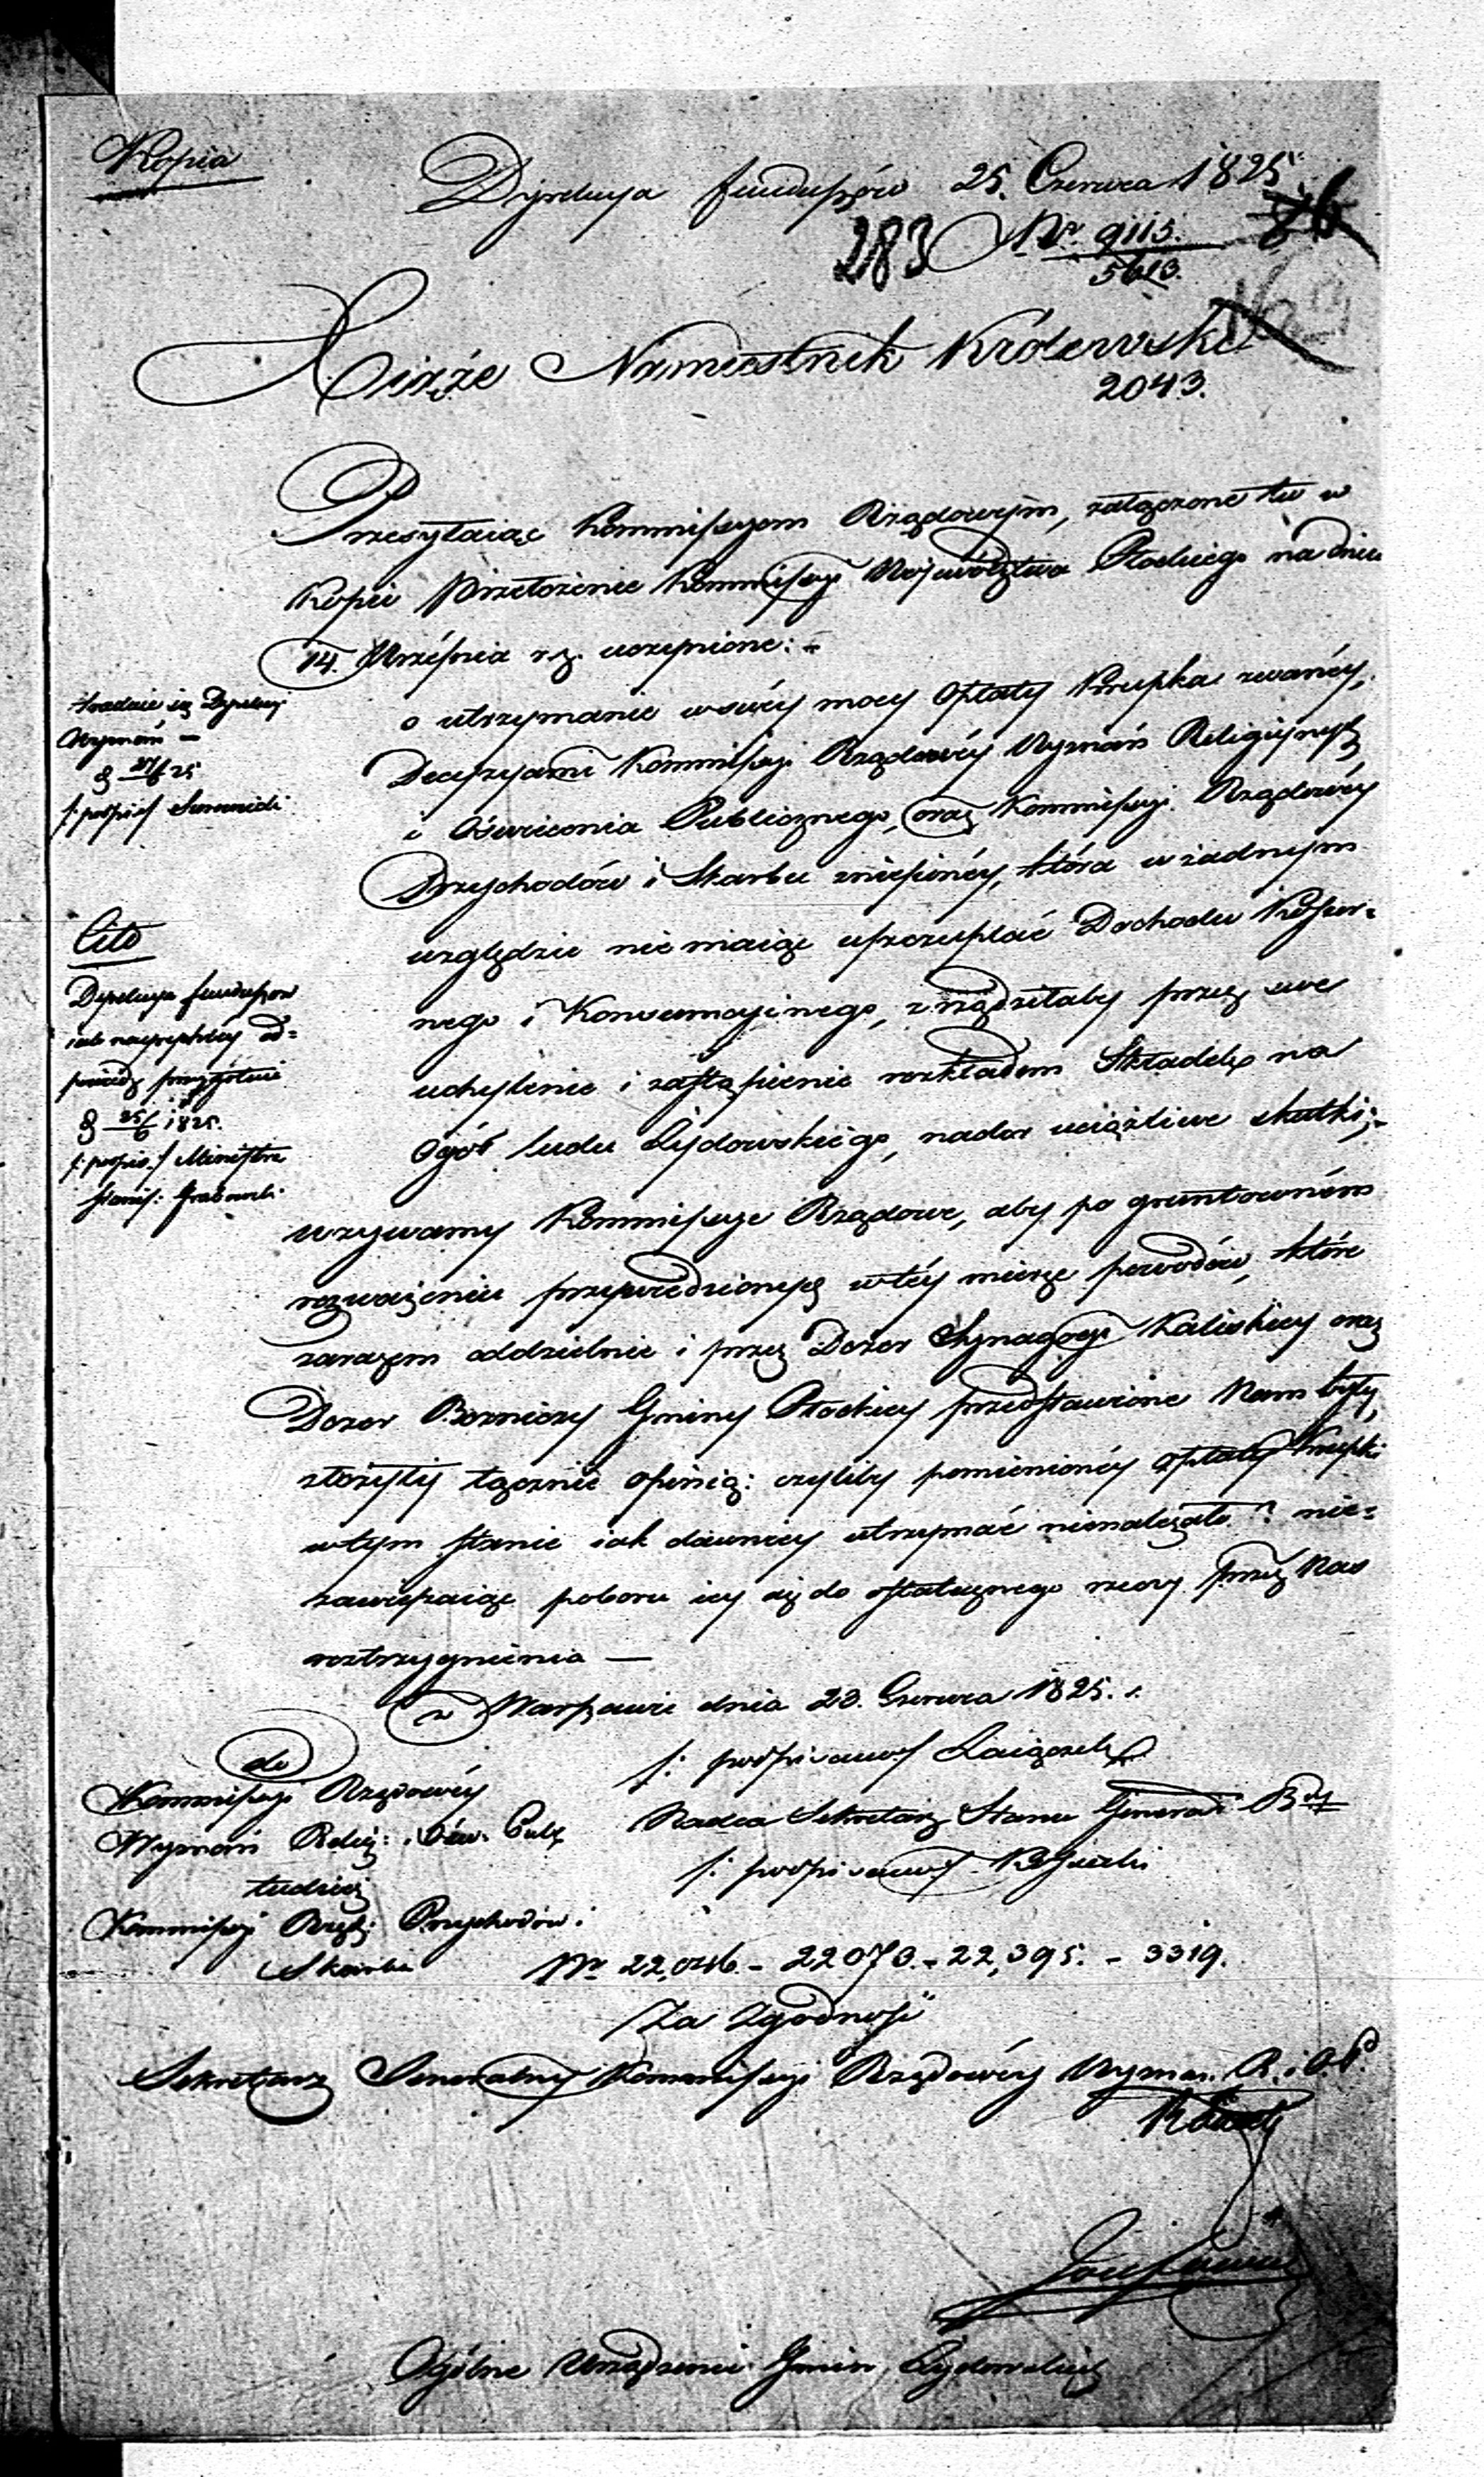 Kopia
Dyrekcya funduszów 25. Czerwca 1825
283 Nr 9115.
5613.
Xiąże Namiestnik Królewski
2043.
Przesyłaiąc Kommissyom Rządowym, załączone tu w
Kopii Przełożenie Kommissyi Województwa Płockiego na dniu
14. Września r.z. uczynione:
o utrzymanie w swéy mocy Opłaty Krupka zwanéy,
Decyzyami Kommissyi Rządowéy Wyznań Religijnych
i Oświecenia Publicznego, oraz Kommissyi Rządowéy
Przychodów i Skarbu zniesionéy, która w żadnym
względzie nie maiąc uszczuplać Dochodu Koszer-
nego i Konsumcyinego, zrządziłaby przez swe
uchylenie i zastąpienie rozkładem Składek na
Ogół ludu Żydowskiégo, nader uciążliwe skutki;
wzywamy Kommissye Rządowe, aby po gruntowném
rozważeniu przywiedzionych w téy mierze powodów, które
zarazem oddzielnie i przez Dozor Synagogi Kaliskiey oraz
Dozor Bozniczy Gminy Płockiey przedstawione Nam były,
złożyły łącznie Opinią: czyliby pomienionéy opłaty Krupki
w tym stanie iak dawniey utrzymać nienależało? nie-
zawieszaiąc poboru iey aż do ostatecznego rzeczy przez Nas
roztrzygnienia —
w Warszawie dnia 23. Czerwca 1825.
/: podpisano/ Zaiączek
Radca Sekretarz Stanu Generał Bdy
/: podpisano/ Kossecki
do
Kommissyi Rządowéy
Wyznań Relig: i Ośw: Publ
tudzież
Kommissyi Rząd: Przychodów i
Skarbu
Nr 22,046. - 22073. - 22,395. - 3319.
Za Zgodność
Sekretarz Generalny Kommissyi Rządowéy Wyznań R. i O. P.
Ogólne Urządzenie Gmin Żydowskich
Wyznań —
27/6 25
/: podpis/
Cito
Dyrekcya funduszow
iak nayspieszniey od-
powiedz przygotuie
25/6 1825.
/: podpis:/ Minister
Stanis: Grabowski